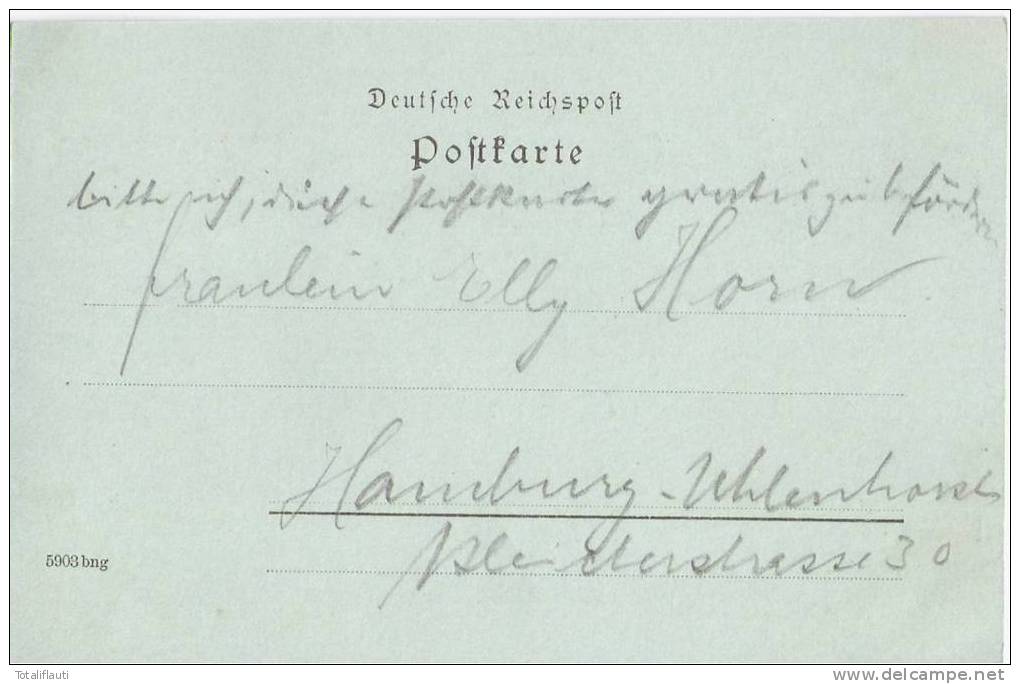 Deutsche Reichspost
Postkarte
bitte ich, diese Postkarte gratis zu befördern
Fräulein Elly Horn
Hamburg-Uhlenhorst
30
5903 bng
Totaliflauti
www.delcampe.net